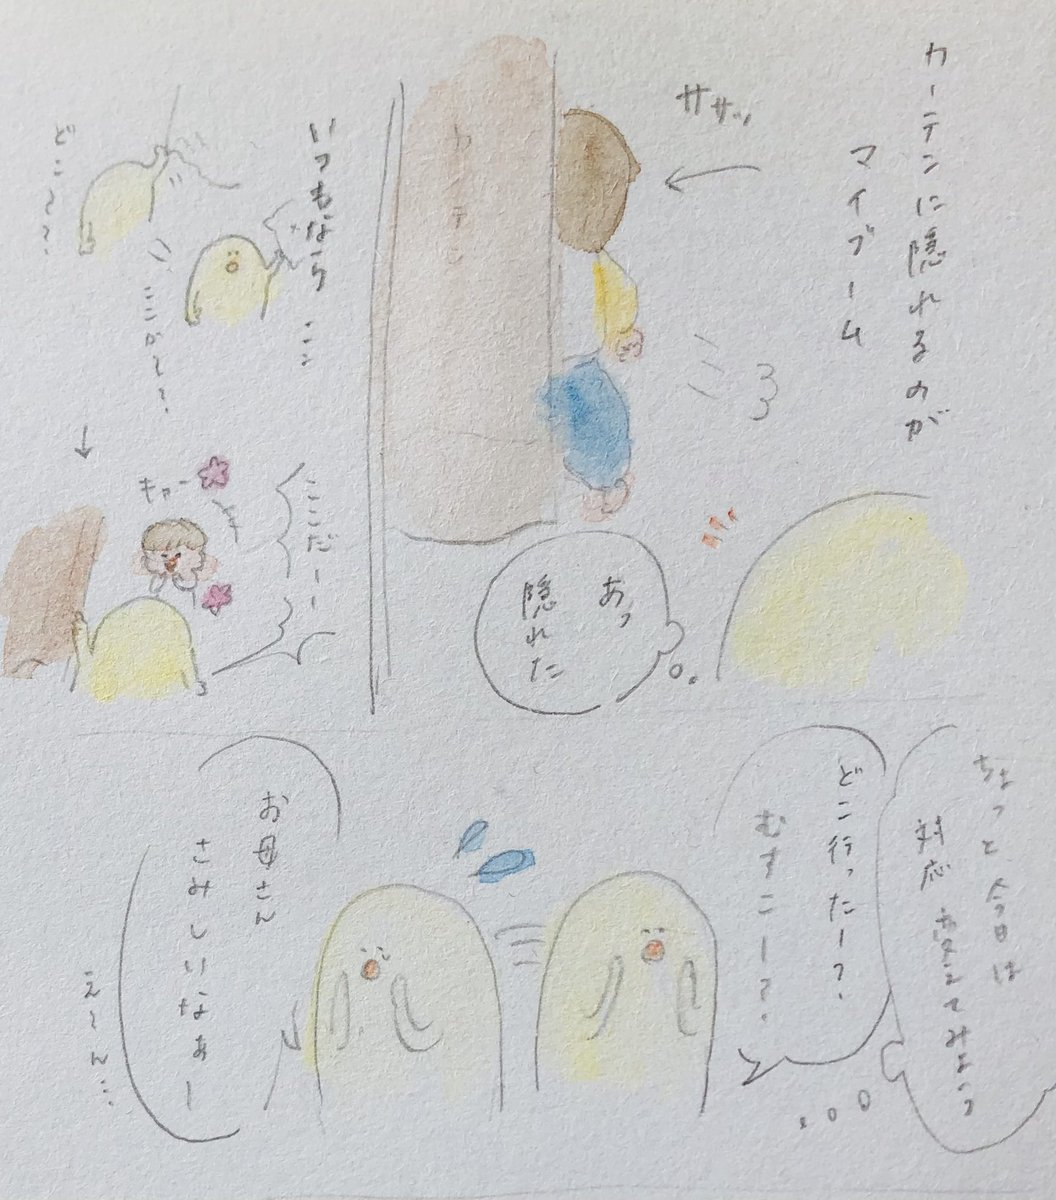 カーテンに隠れるのが
マイブーム
ササッ
カーテン
あっ
隠れた
いつもなら
ここ
ここか〜?
どこ〜?
ここだーー
キャー
ちょっと今日は
対応変えてみよっ
どこ行ったー?
むすこー?
お母さん
さみしいなぁー
え〜ん…